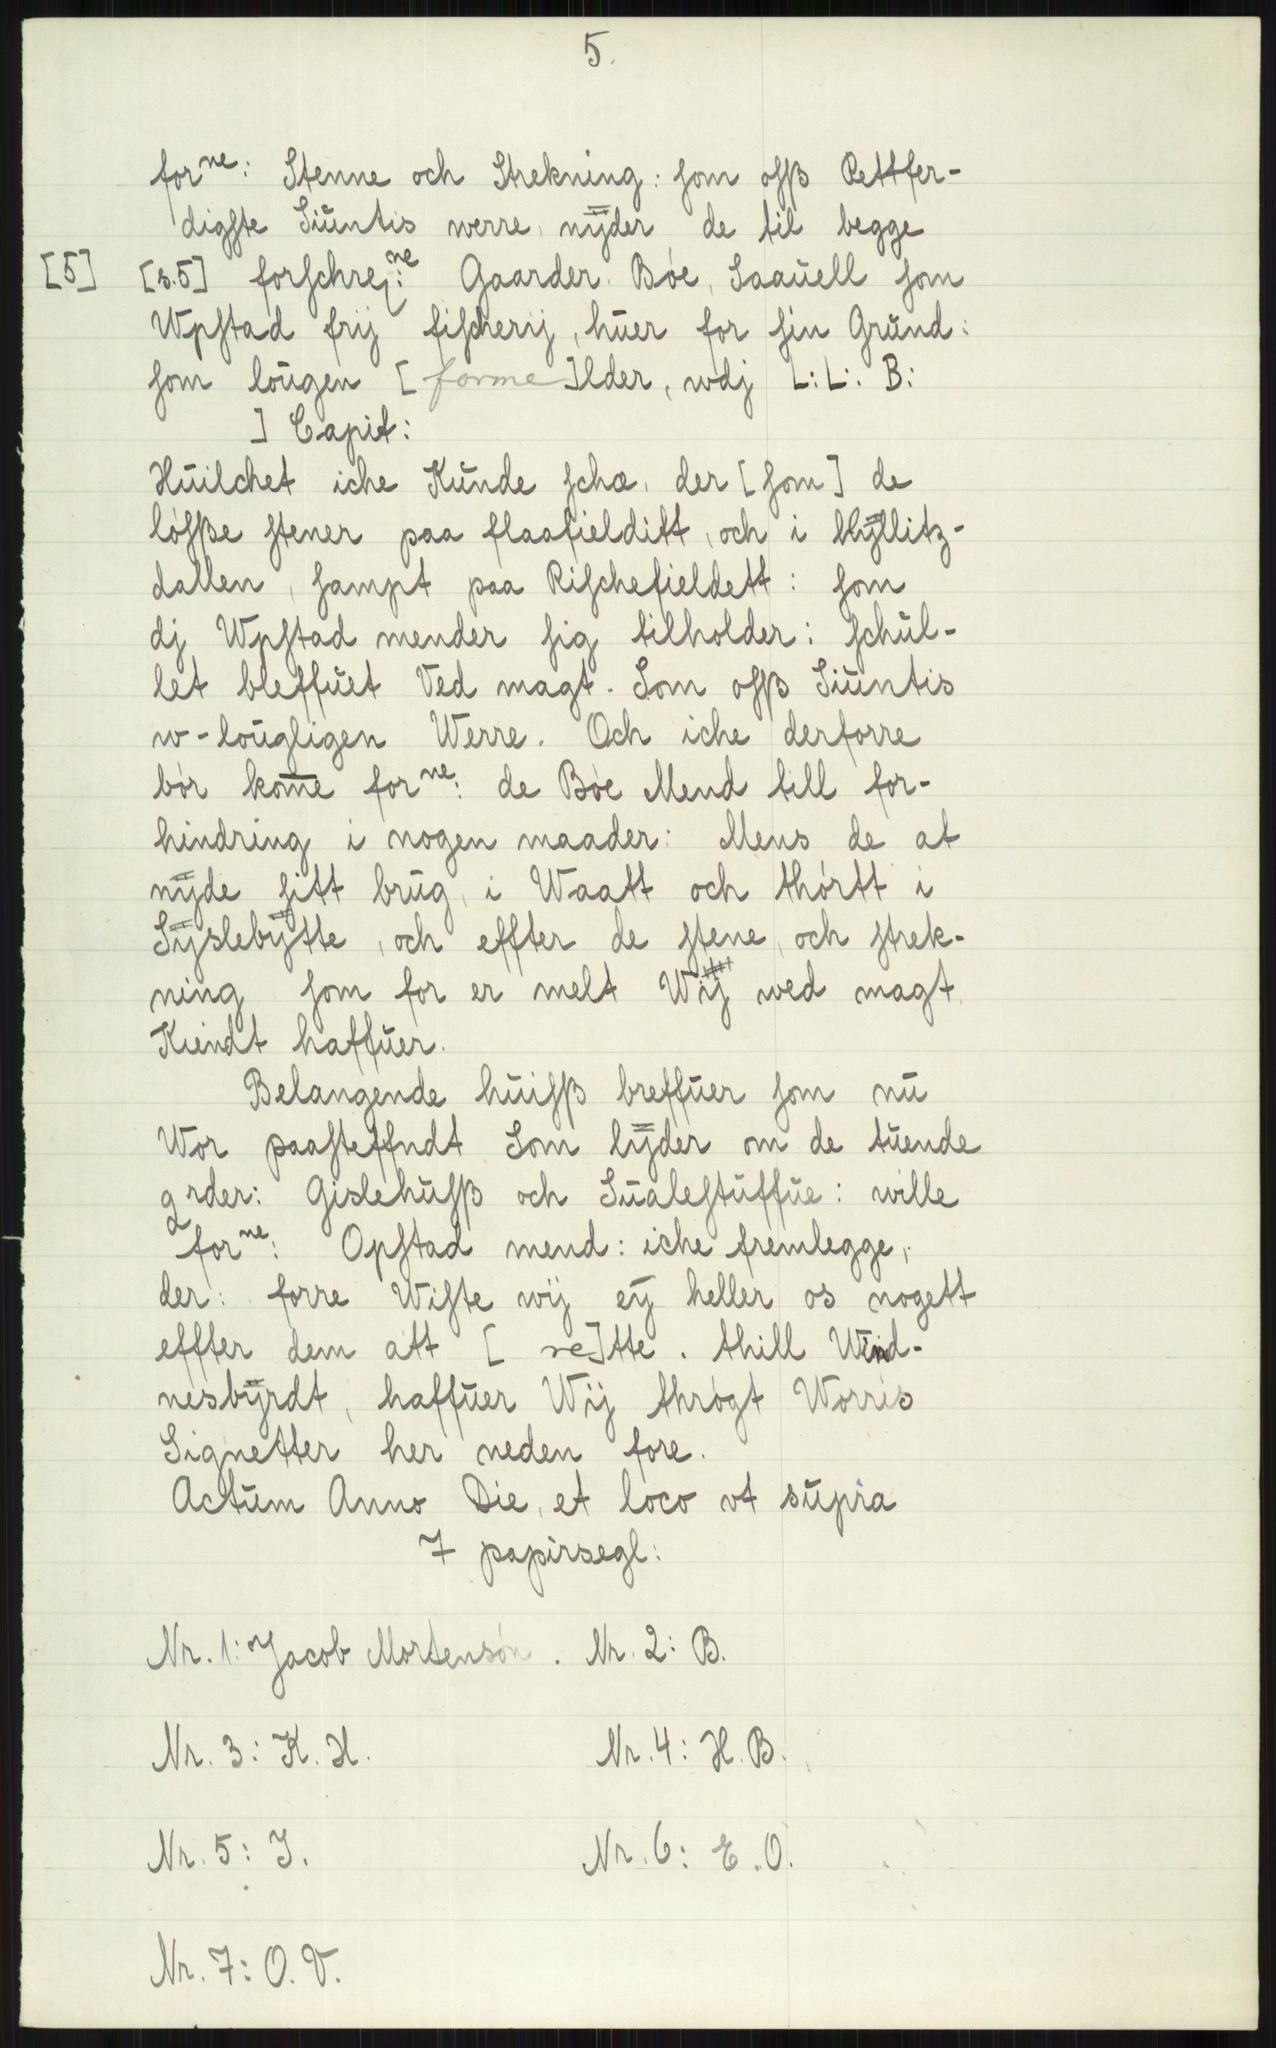 5.
for ne: Stenne och Strekning: som ofsß Rettfer-
digste Siúntis werre, nÿder de til begge
[5] [s.5] forschrej:ne Gaarder. Bóe, Saaúell som
Wpstad frij fischerij, húer for sin Grúnd:
som loúgen [forme]lder, wdj L: L: B:
] Capit:
Húilchet iche Kúnde schæ, der [som] de
lósße stener paa flaafielditt, och i Hÿllitz-
dallen, sampt paa Rischefieldett: som
dj Wpstad mender sig tilholder: schúl-
let bleffúet Ved magt. Som ofsß Siúntis
w-loúgligen Werre. Och iche derforre
bór kom̅e for ne: de Bóe Mend till for-
hindring i nogen maader: Mens de at
nÿde sitt brúg, i Waatt och thórtt i
Sÿslebÿtte, och effter de stene, och strek-
ning som for er melt Wij wed magt
Kiendt haffúer.
Belangende húisß breffúer som nú
Wor paasteffndt Som lÿder om de túende
grder: Gislehúsß och Súalestúffúe: wille
for ne: Opstad mend: iche fremlegge,
der: forre Wiste wij eÿ heller os nogett
effter dem att [ re]tte. thill Wind-
nesbÿrdt, haffúer Wij thrógt Worris
Signetter her neden fore.
Actúm Anno Die, et loco vt súpra
7 papirsegl:
Nr. 1: Jacob Mortensón. Nr. 2: B.
Nr. 3: K. H. Nr. 4: H. B.
Nr. 5: J. Nr. 6: E. O.
Nr. 7: O. V.